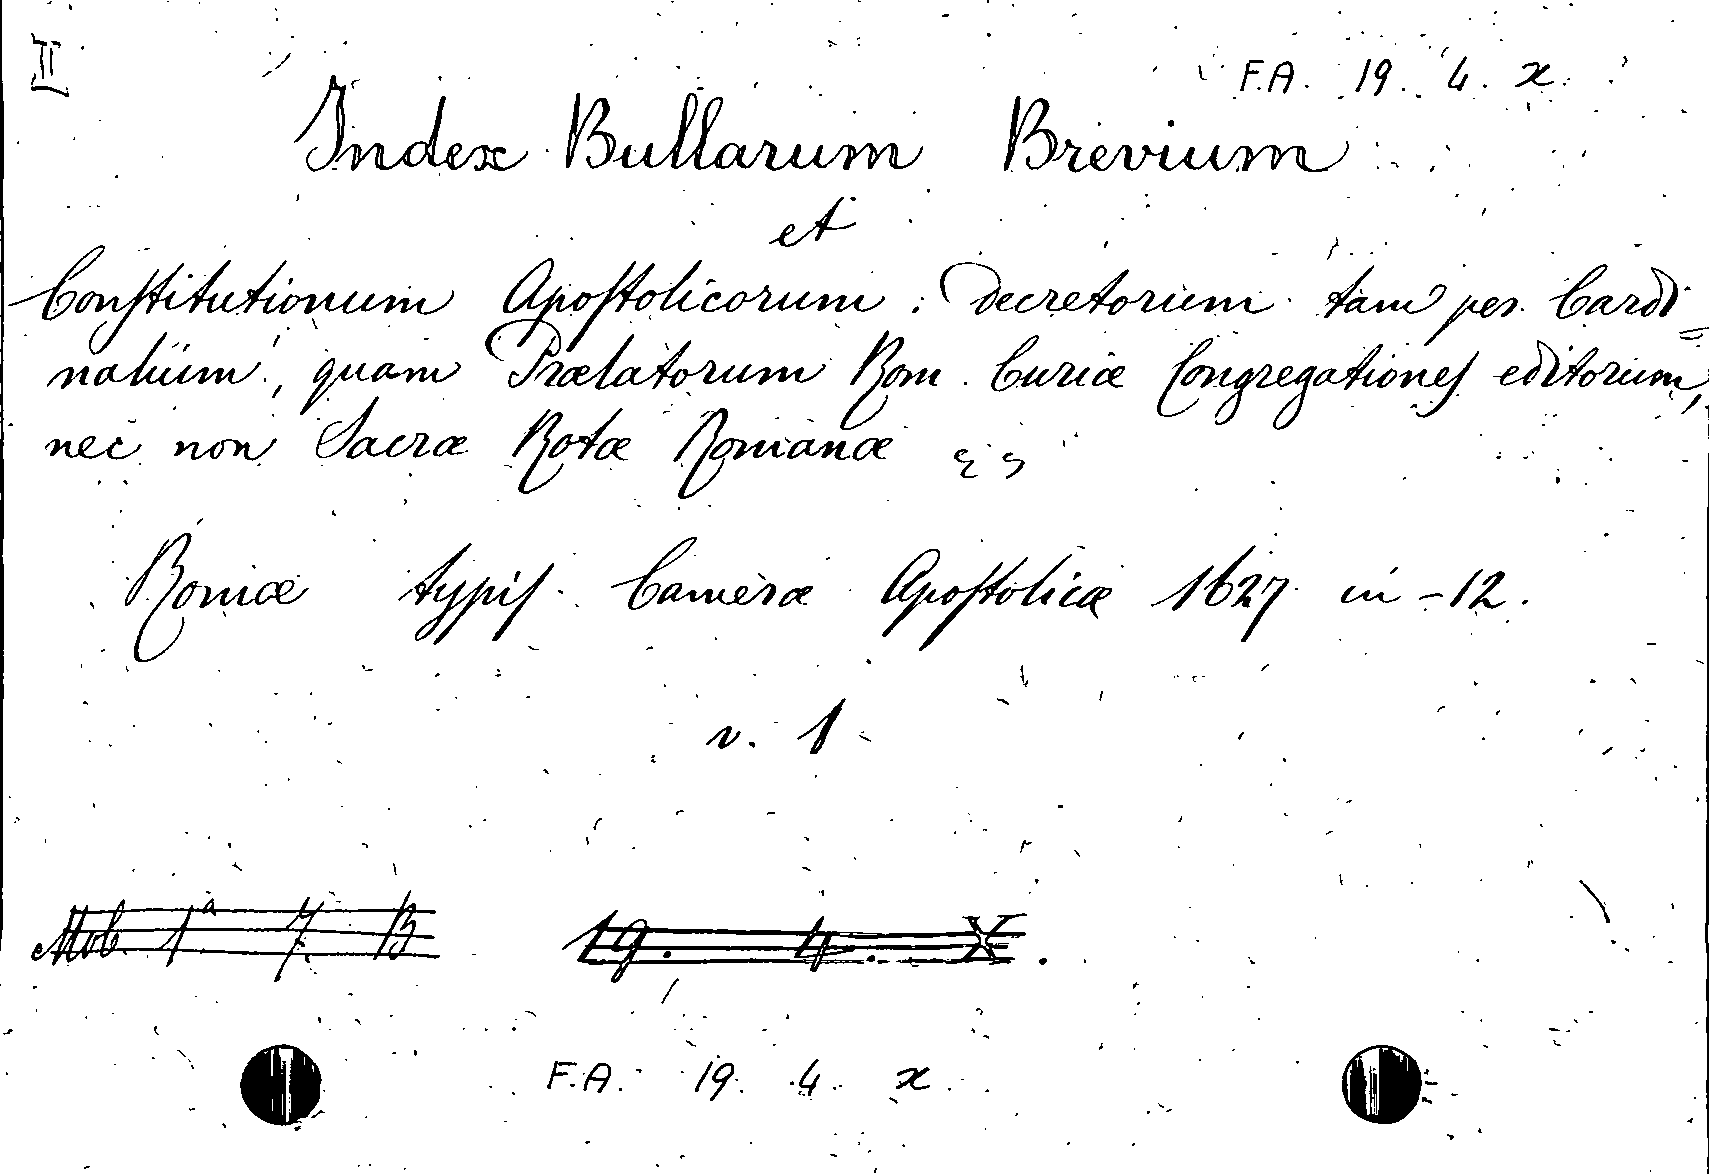 II
F.A. 19. 4. x.
Index Bullarum Brevium
et
Conſtitutionum Apoſtolicorum: Decretorum tam per Cardi=
nalium, quam Prælatorum Rom. Curiæ Congregationeſ editorum,
nec non Sacræ Rotæ Romanæ
Romæ typiſ Cameræ Apoſtolicæ 1627 in-12.
v. 1
Mob. 1ª 7. B 19. 4. X.
F.A. 19. 4. x.